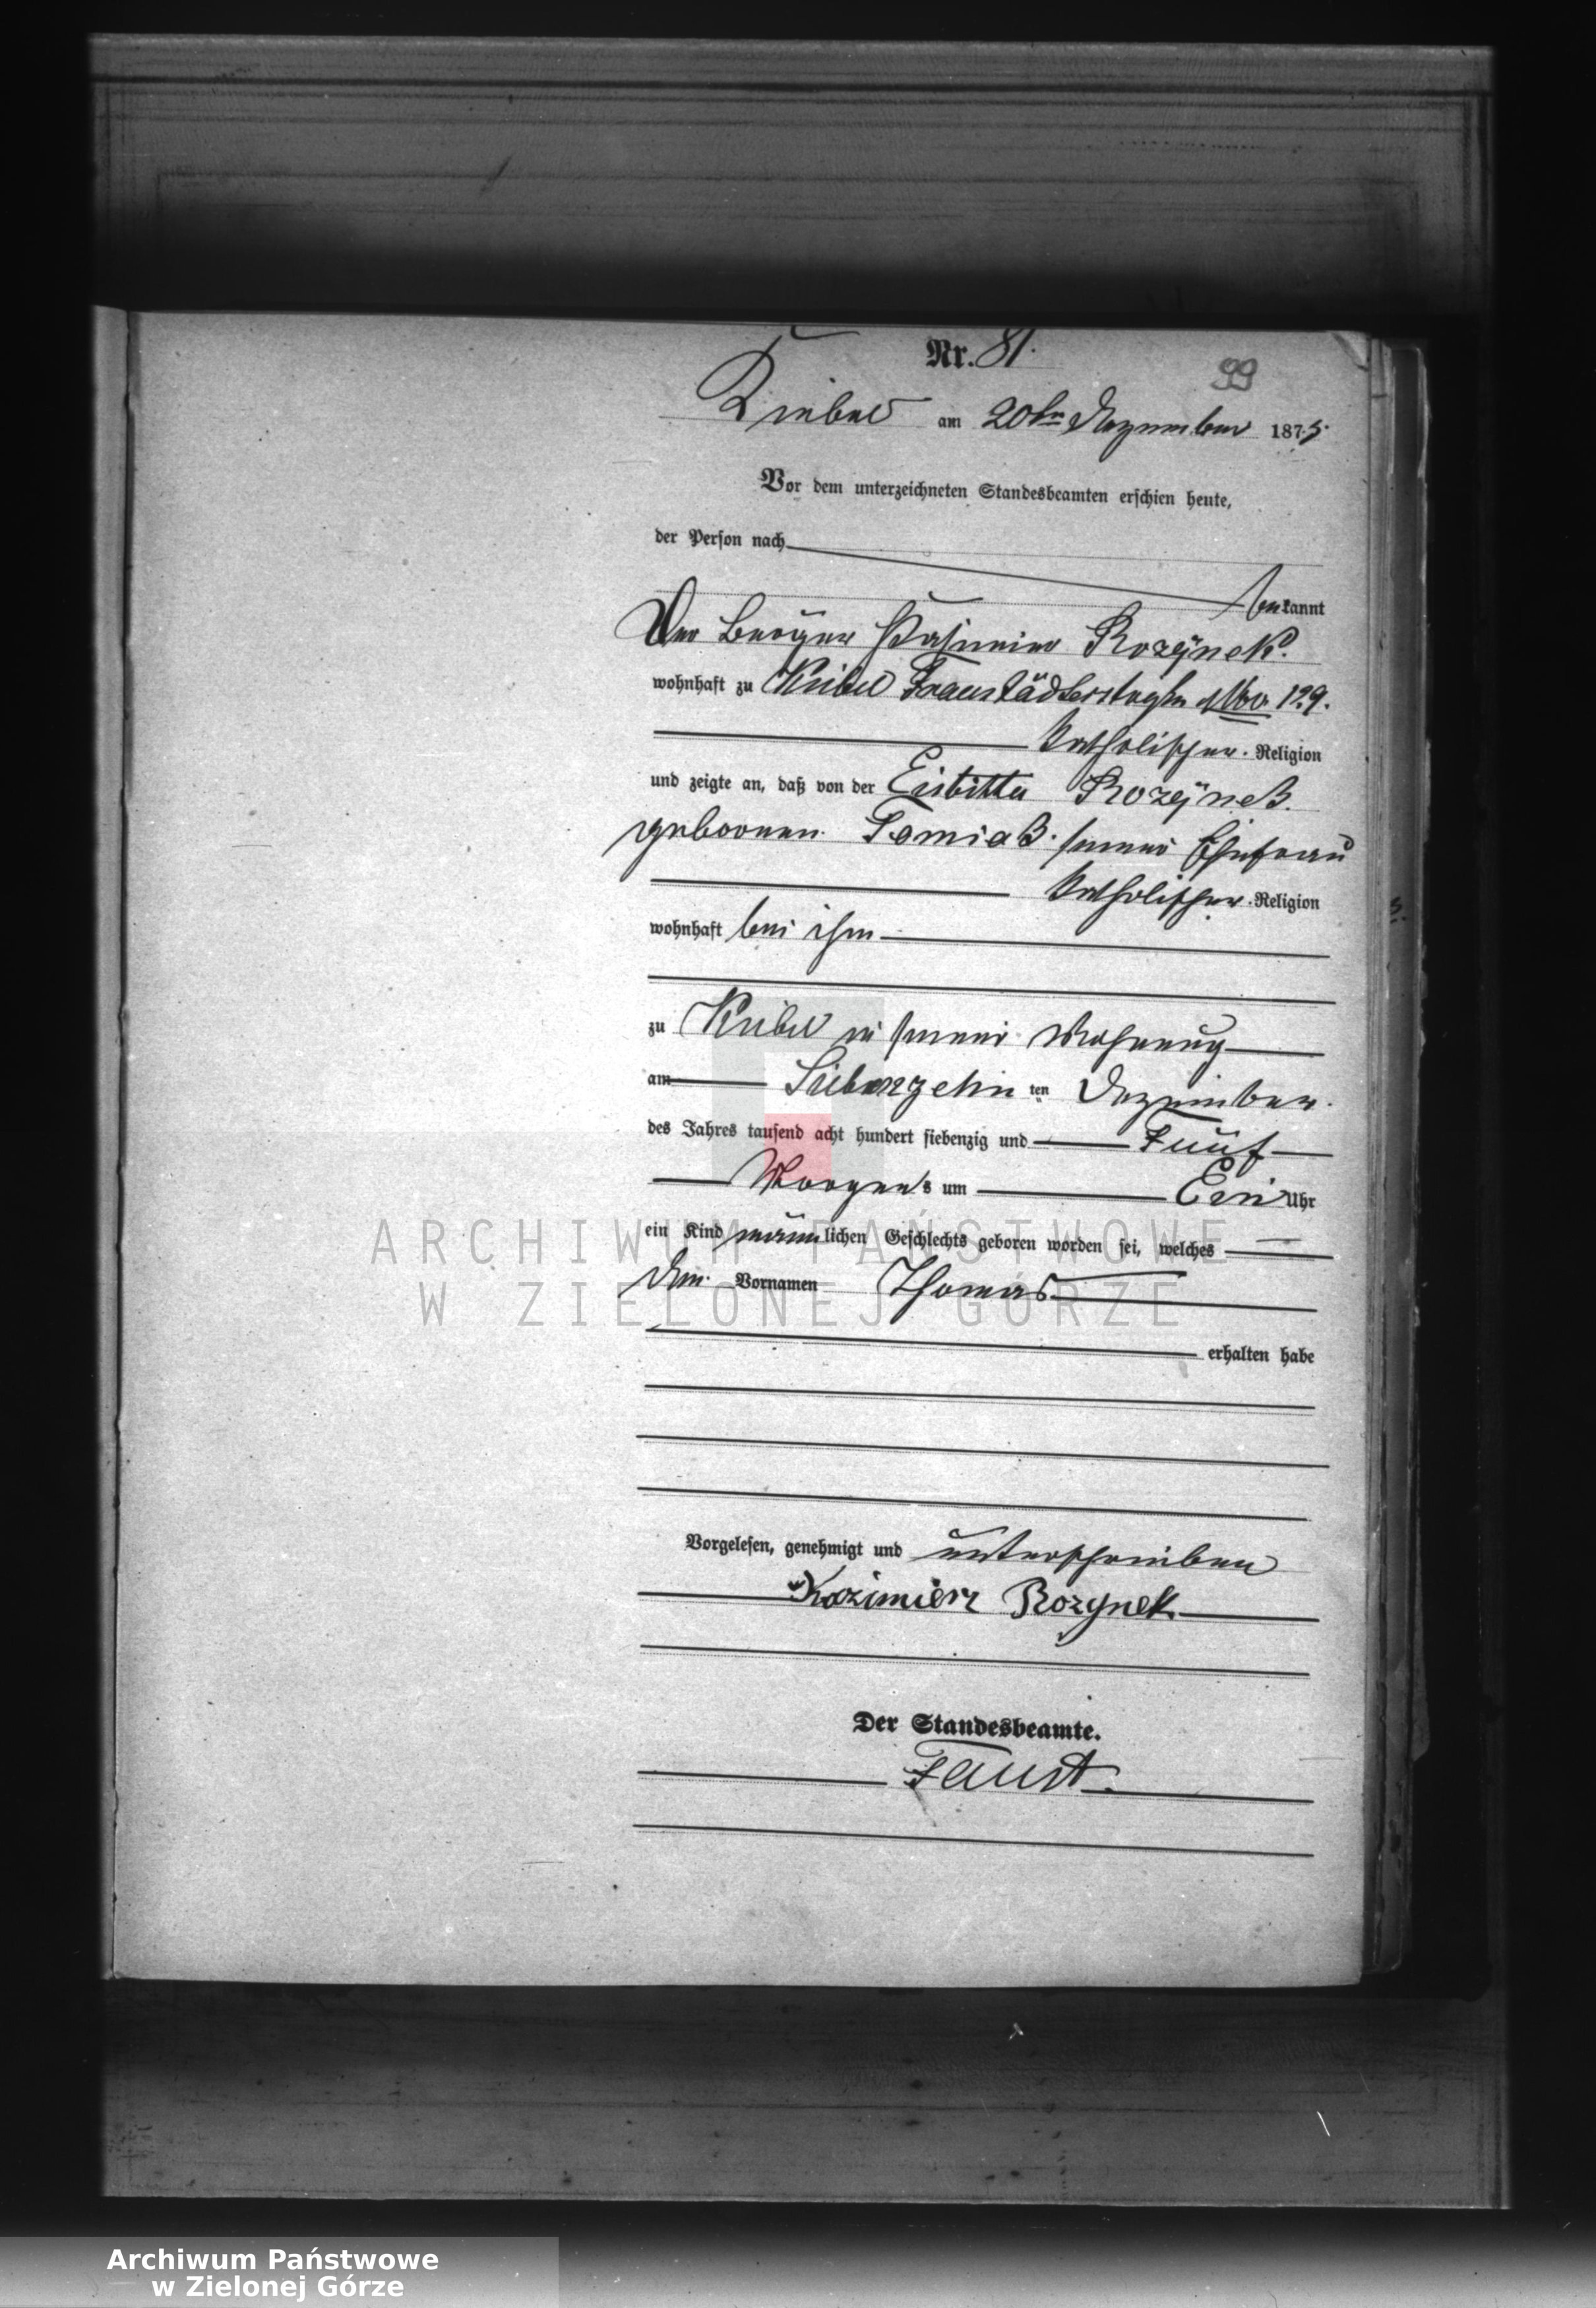 Nr. 81.
99
Kiebel am 20ten Dezember 1875.
Vor dem unterzeichneten Standesbeamten erschien heute,
der Person nach
bekannt
Der Bürger Kasimier Rozÿnek.
wohnhaft zu Kiebel Fraustädterstraße No 129.
Katholischer Religion
und zeigte an, daß von der Rozÿnek.
geborenen seiner Ehefrau
Katholischer Religion
wohnhaft bei ihm
zu Kiebel in seiner Wohnung
am Siebenzehn ten Dezember.
des Jahres tausend acht hundert siebenzig und Fünf
Morgens um Ein Uhr
ein Kind männlichen Geschlechts geboren worden sei, welches
den Vornamen Thomas
erhalten habe
Vorgelesen, genehmigt und unterschrieben
Kazimierz Rozynek
Der Standesbeamte.
Faust.
ARCHIWUM PAŃSTWOWE
W ZIELONEJ GÓRZE
Archiwum Państwowe
w Zielonej Górze